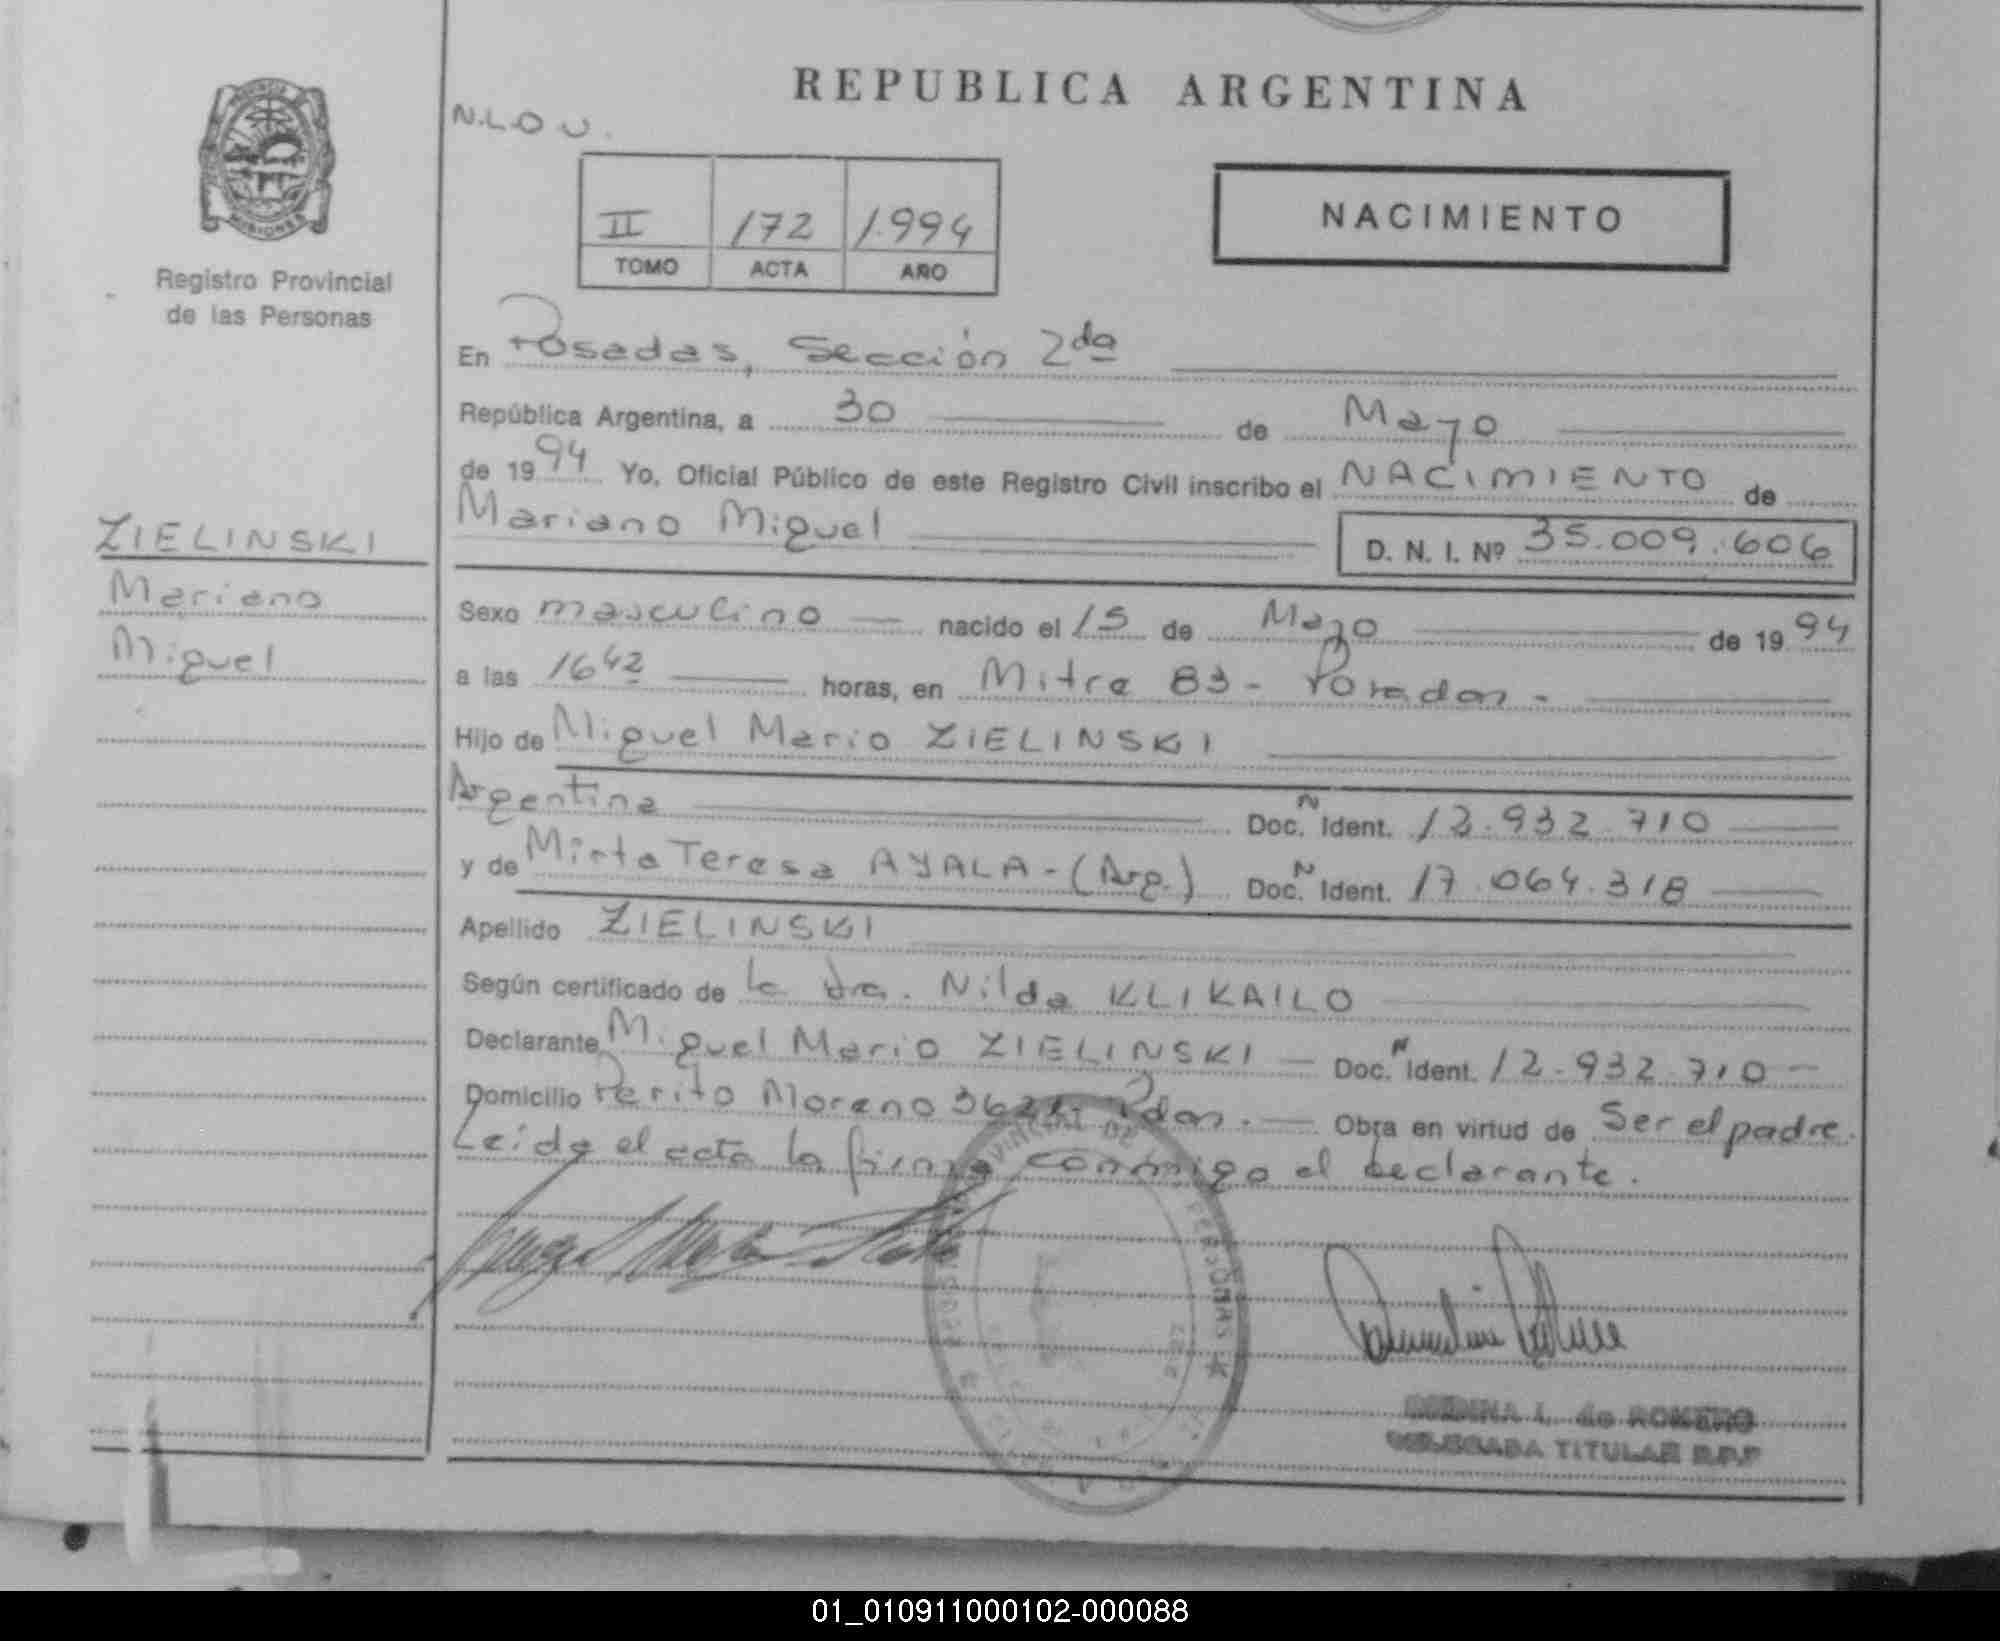 REPUBLICA ARGENTINA
N.L.O U.
NACIMIENTO
II 172 1.994
TOMO ACTA AÑO
MISIONES
Registro Provincial
de las Personas
En Posadas, Sección 2da
República Argentina, a 30 de Mayo
de 1994 Yo, Oficial Público de este Registro Civil inscribo el NACIMIENTO de
Mariano Miguel D. N. I. Nº 35.009.606
ZIELINSKI
Mariano
Miguel
Sexo masculino nacido el 15 de Mayo de 1994
a las 1642 horas, en Mitre 83 - Posadas -
Hijo de Miguel Mario ZIELINSKI
Argentina Doc. N Ident. 12.932.710
y de Mirta Teresa AYALA - (Arg.) Doc. N Ident. 17.064.318
Apellido ZIELINSKI
Según certificado de la dra. Nilda KLIKAILO
Declarante Miguel Mario ZIELINSKI - Doc. N Ident. 12.932.710 -
Domicilio Perito Moreno Pdas. - Obra en virtud de Ser el padre.
Leida el acta la firma conmigo el declarante.
L. de ROMERO
DELEGADA TITULAR R.P.P
01_010911000102-000088